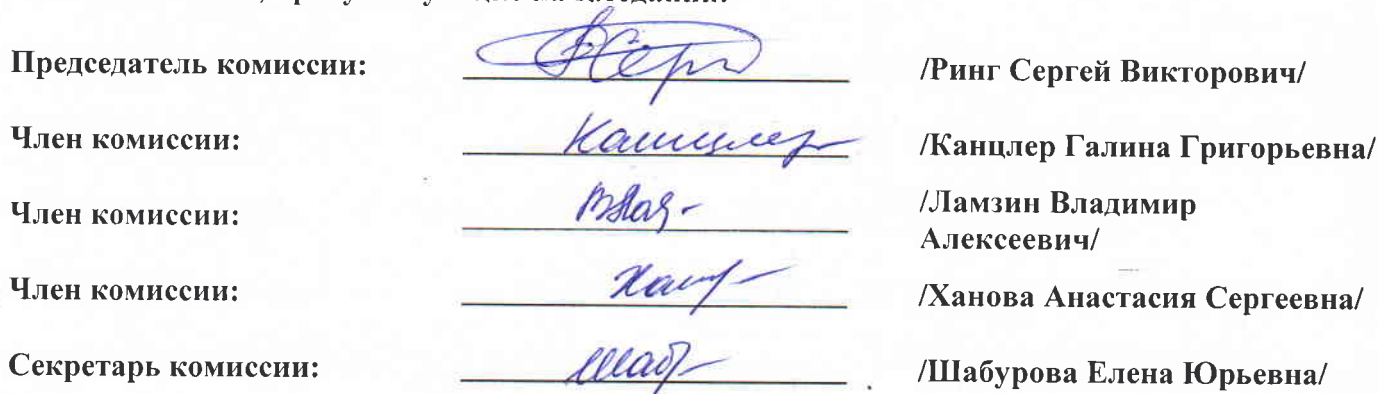 Председатель комиссии: /Ринг Сергей Викторович/
Член комиссии: Канцлер /Канцлер Галина Григорьевна/
Член комиссии: /Ламзин Владимир
Алексеевич/
Член комиссии: /Ханова Анастасия Сергеевна/
Секретарь комиссии: Шаб /Шабурова Елена Юрьевна/